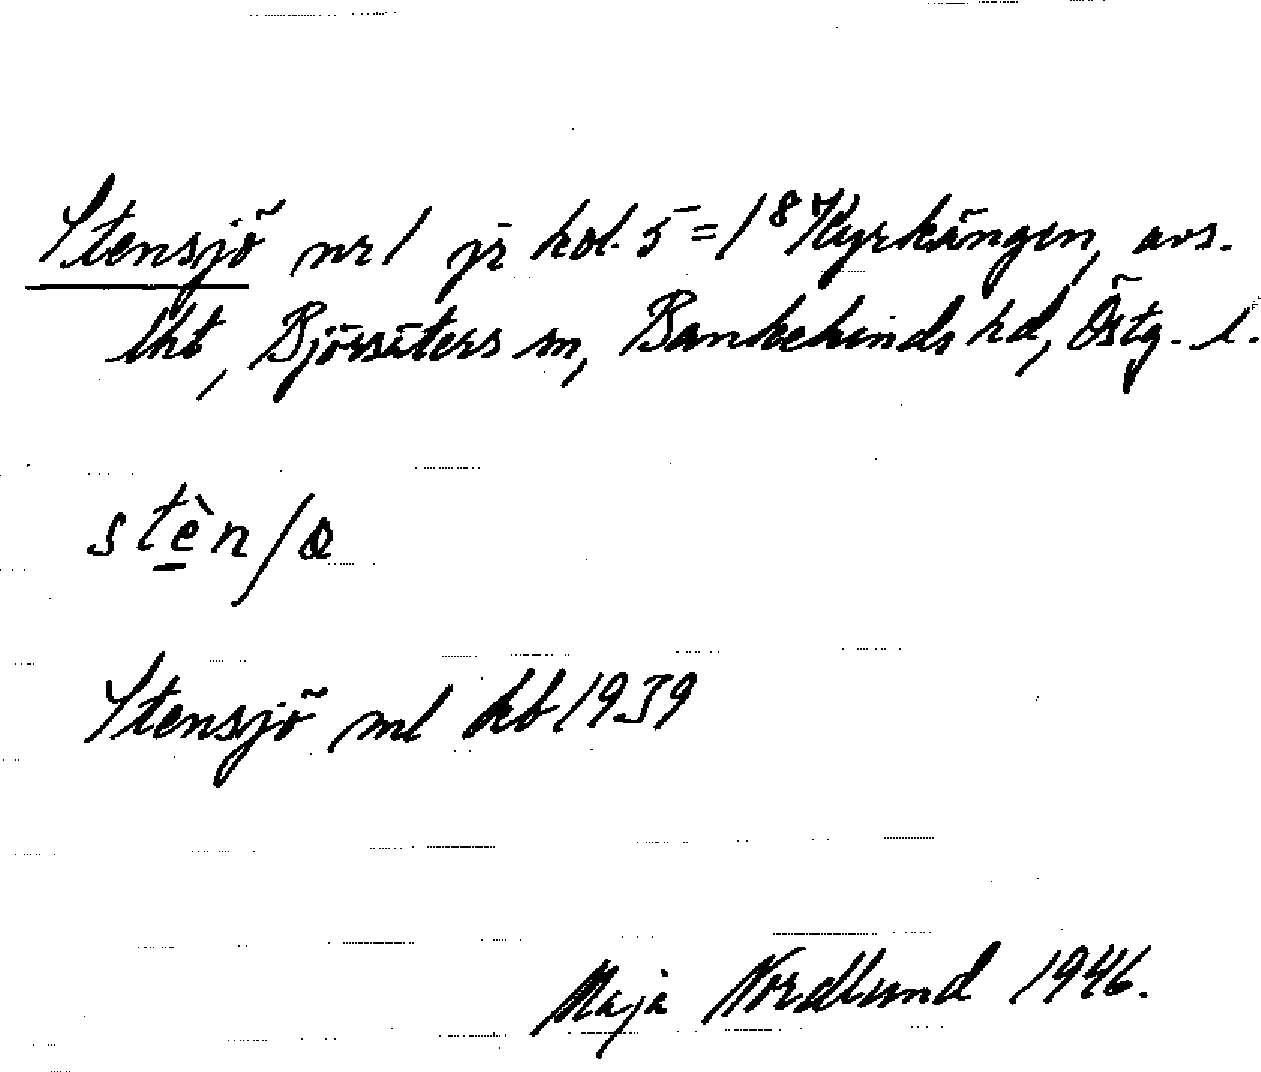 Stensjö nr 1 jr kol. 5 = 1⁸ Kyrkängen, avs.
lht, Björsäters sn, Bankekinds hd, Östg. l.
stèn/ø
Stensjö ml kb 1939
Maja Nordlund 1946.